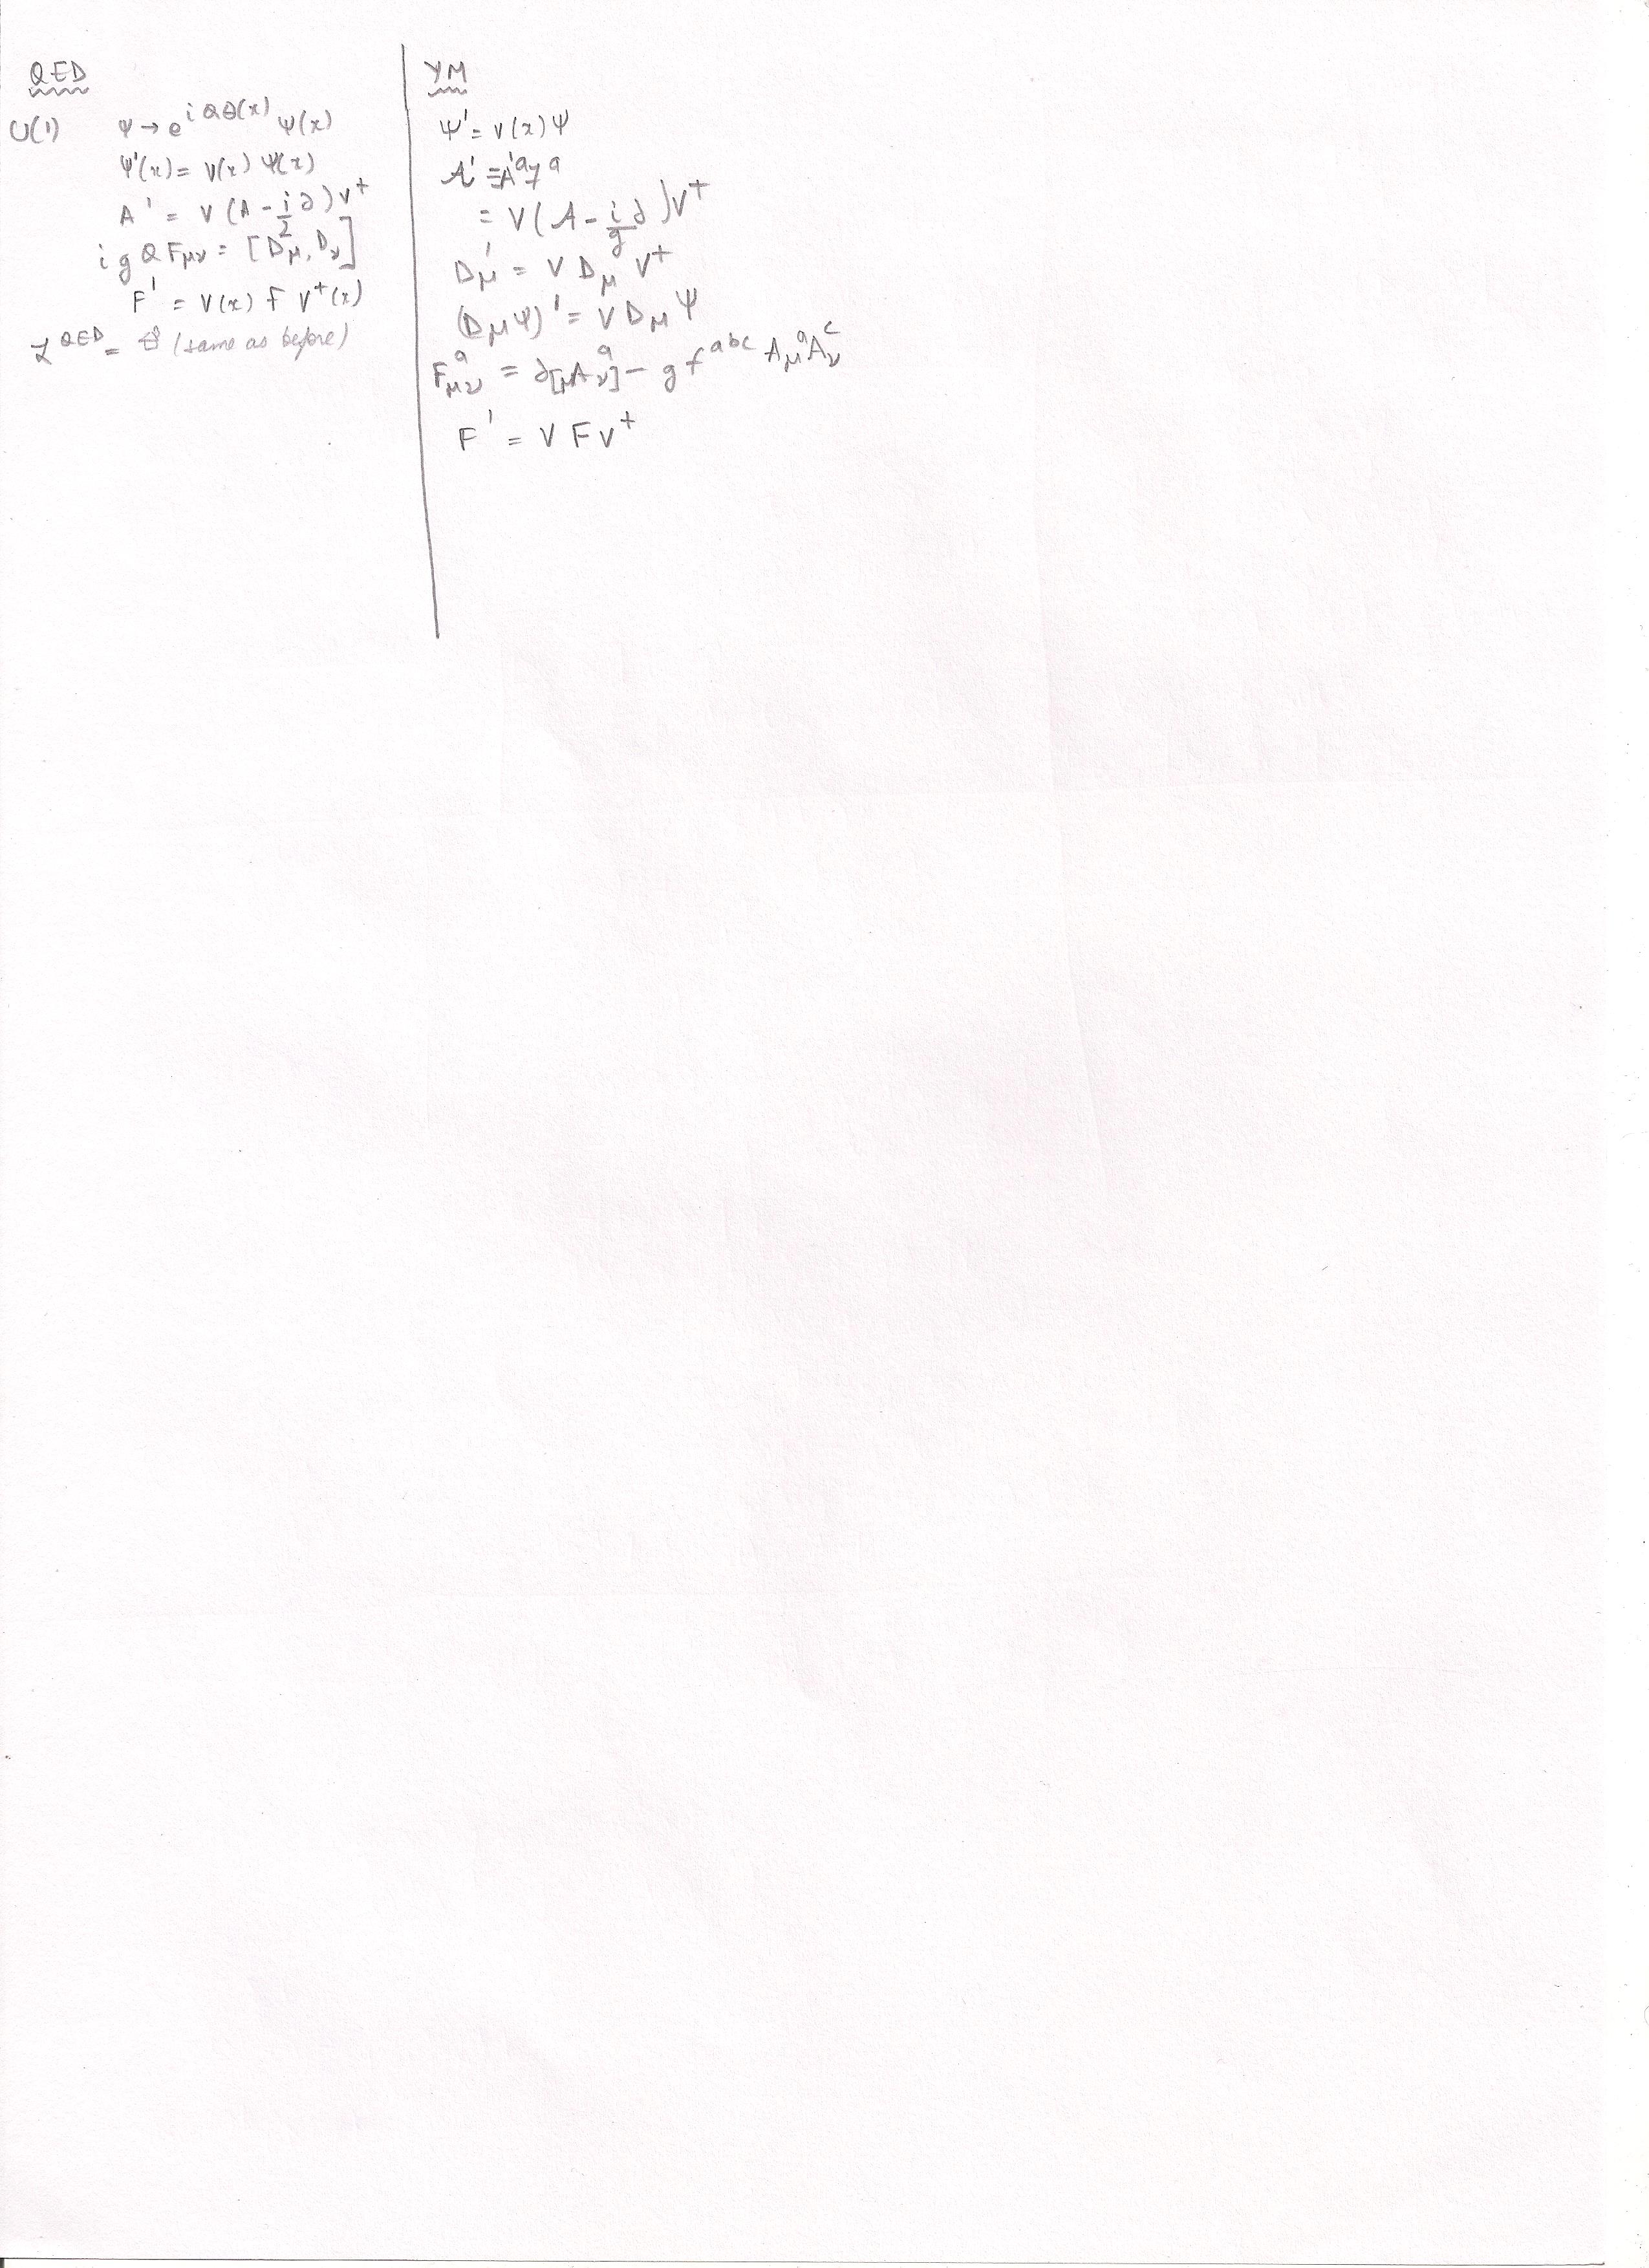 QED
U(1) ψ → e^{iQθ(x)} ψ(x)
ψ'(x) = V(x) ψ(x)
A' = V(A - i/2 ∂)V†
i g Q Fμν = [Dμ, Dν]
F' = V(x) F V†(x)
ℒ^{QED} = (same as before)
YM
ψ' = V(x)ψ
A' = A'^a T^a
= V(A - i/g ∂)V†
Dμ' = V Dμ V†
(Dμψ)' = V Dμ ψ
F^a_{μν} = ∂_{[μ}A^a_{ν]} - g f^{abc} A_μ^a A_ν^c
F' = V F V†